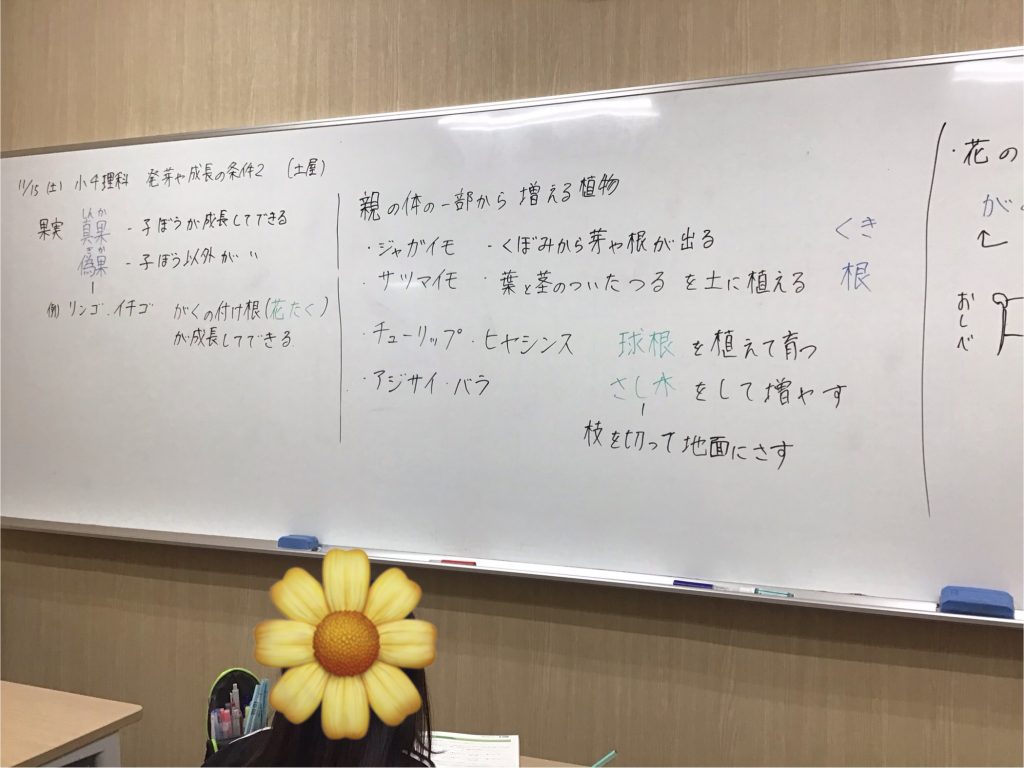 11/15 (土) 小4理科 発芽や成長の条件2 (土屋)
果実 真果 - 子ぼうが成長してできる
しんか
偽果 - 子ぼう以外が 〃
ぎか
(例) リンゴ・イチゴ がくの付け根(花たく)
が成長してできる
親の体の一部から増える植物
・ジャガイモ - くぼみから芽や根が出る くき
・サツマイモ ・葉と茎のついたつるを土に植える 根
・チューリップ・ヒヤシンス 球根を植えて育つ
・アジサイ・バラ さし木をして増やす
枝を切って地面にさす
・花の
がく
おしべ